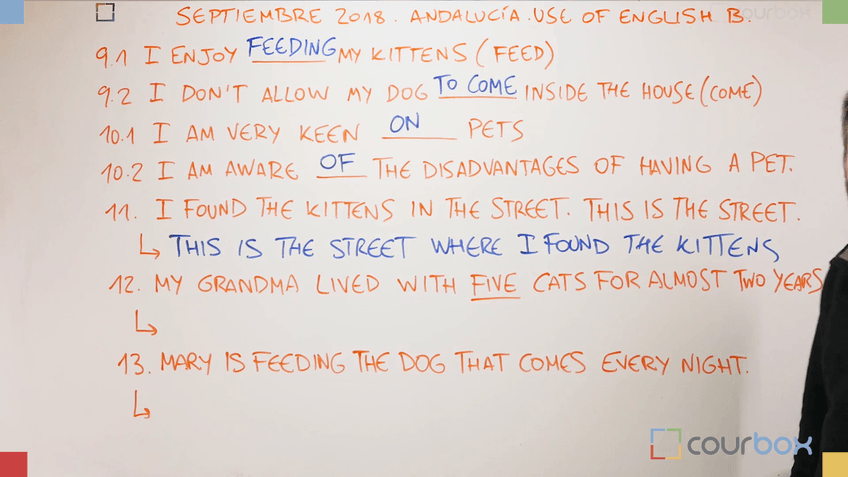 SEPTIEMBRE 2018. ANDALUCÍA. USE OF ENGLISH B.
9.1 I ENJOY FEEDING MY KITTENS (FEED)
9.2 I DON'T ALLOW MY DOG TO COME INSIDE THE HOUSE (COME)
10.1 I AM VERY KEEN ON PETS
10.2 I AM AWARE OF THE DISADVANTAGES OF HAVING A PET.
11. I FOUND THE KITTENS IN THE STREET. THIS IS THE STREET.
↳ THIS IS THE STREET WHERE I FOUND THE KITTENS
12. MY GRANDMA LIVED WITH FIVE CATS FOR ALMOST TWO YEARS
↳
13. MARY IS FEEDING THE DOG THAT COMES EVERY NIGHT.
↳
courbox
courbox